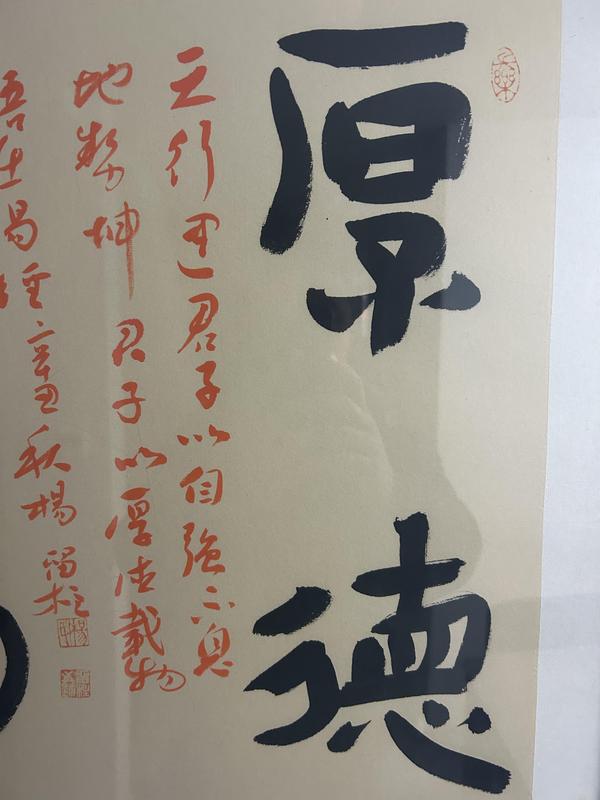 厚德
天行健君子以自強不息
地勢坤君子以厚德載物
語出易經辛丑秋楊留柱